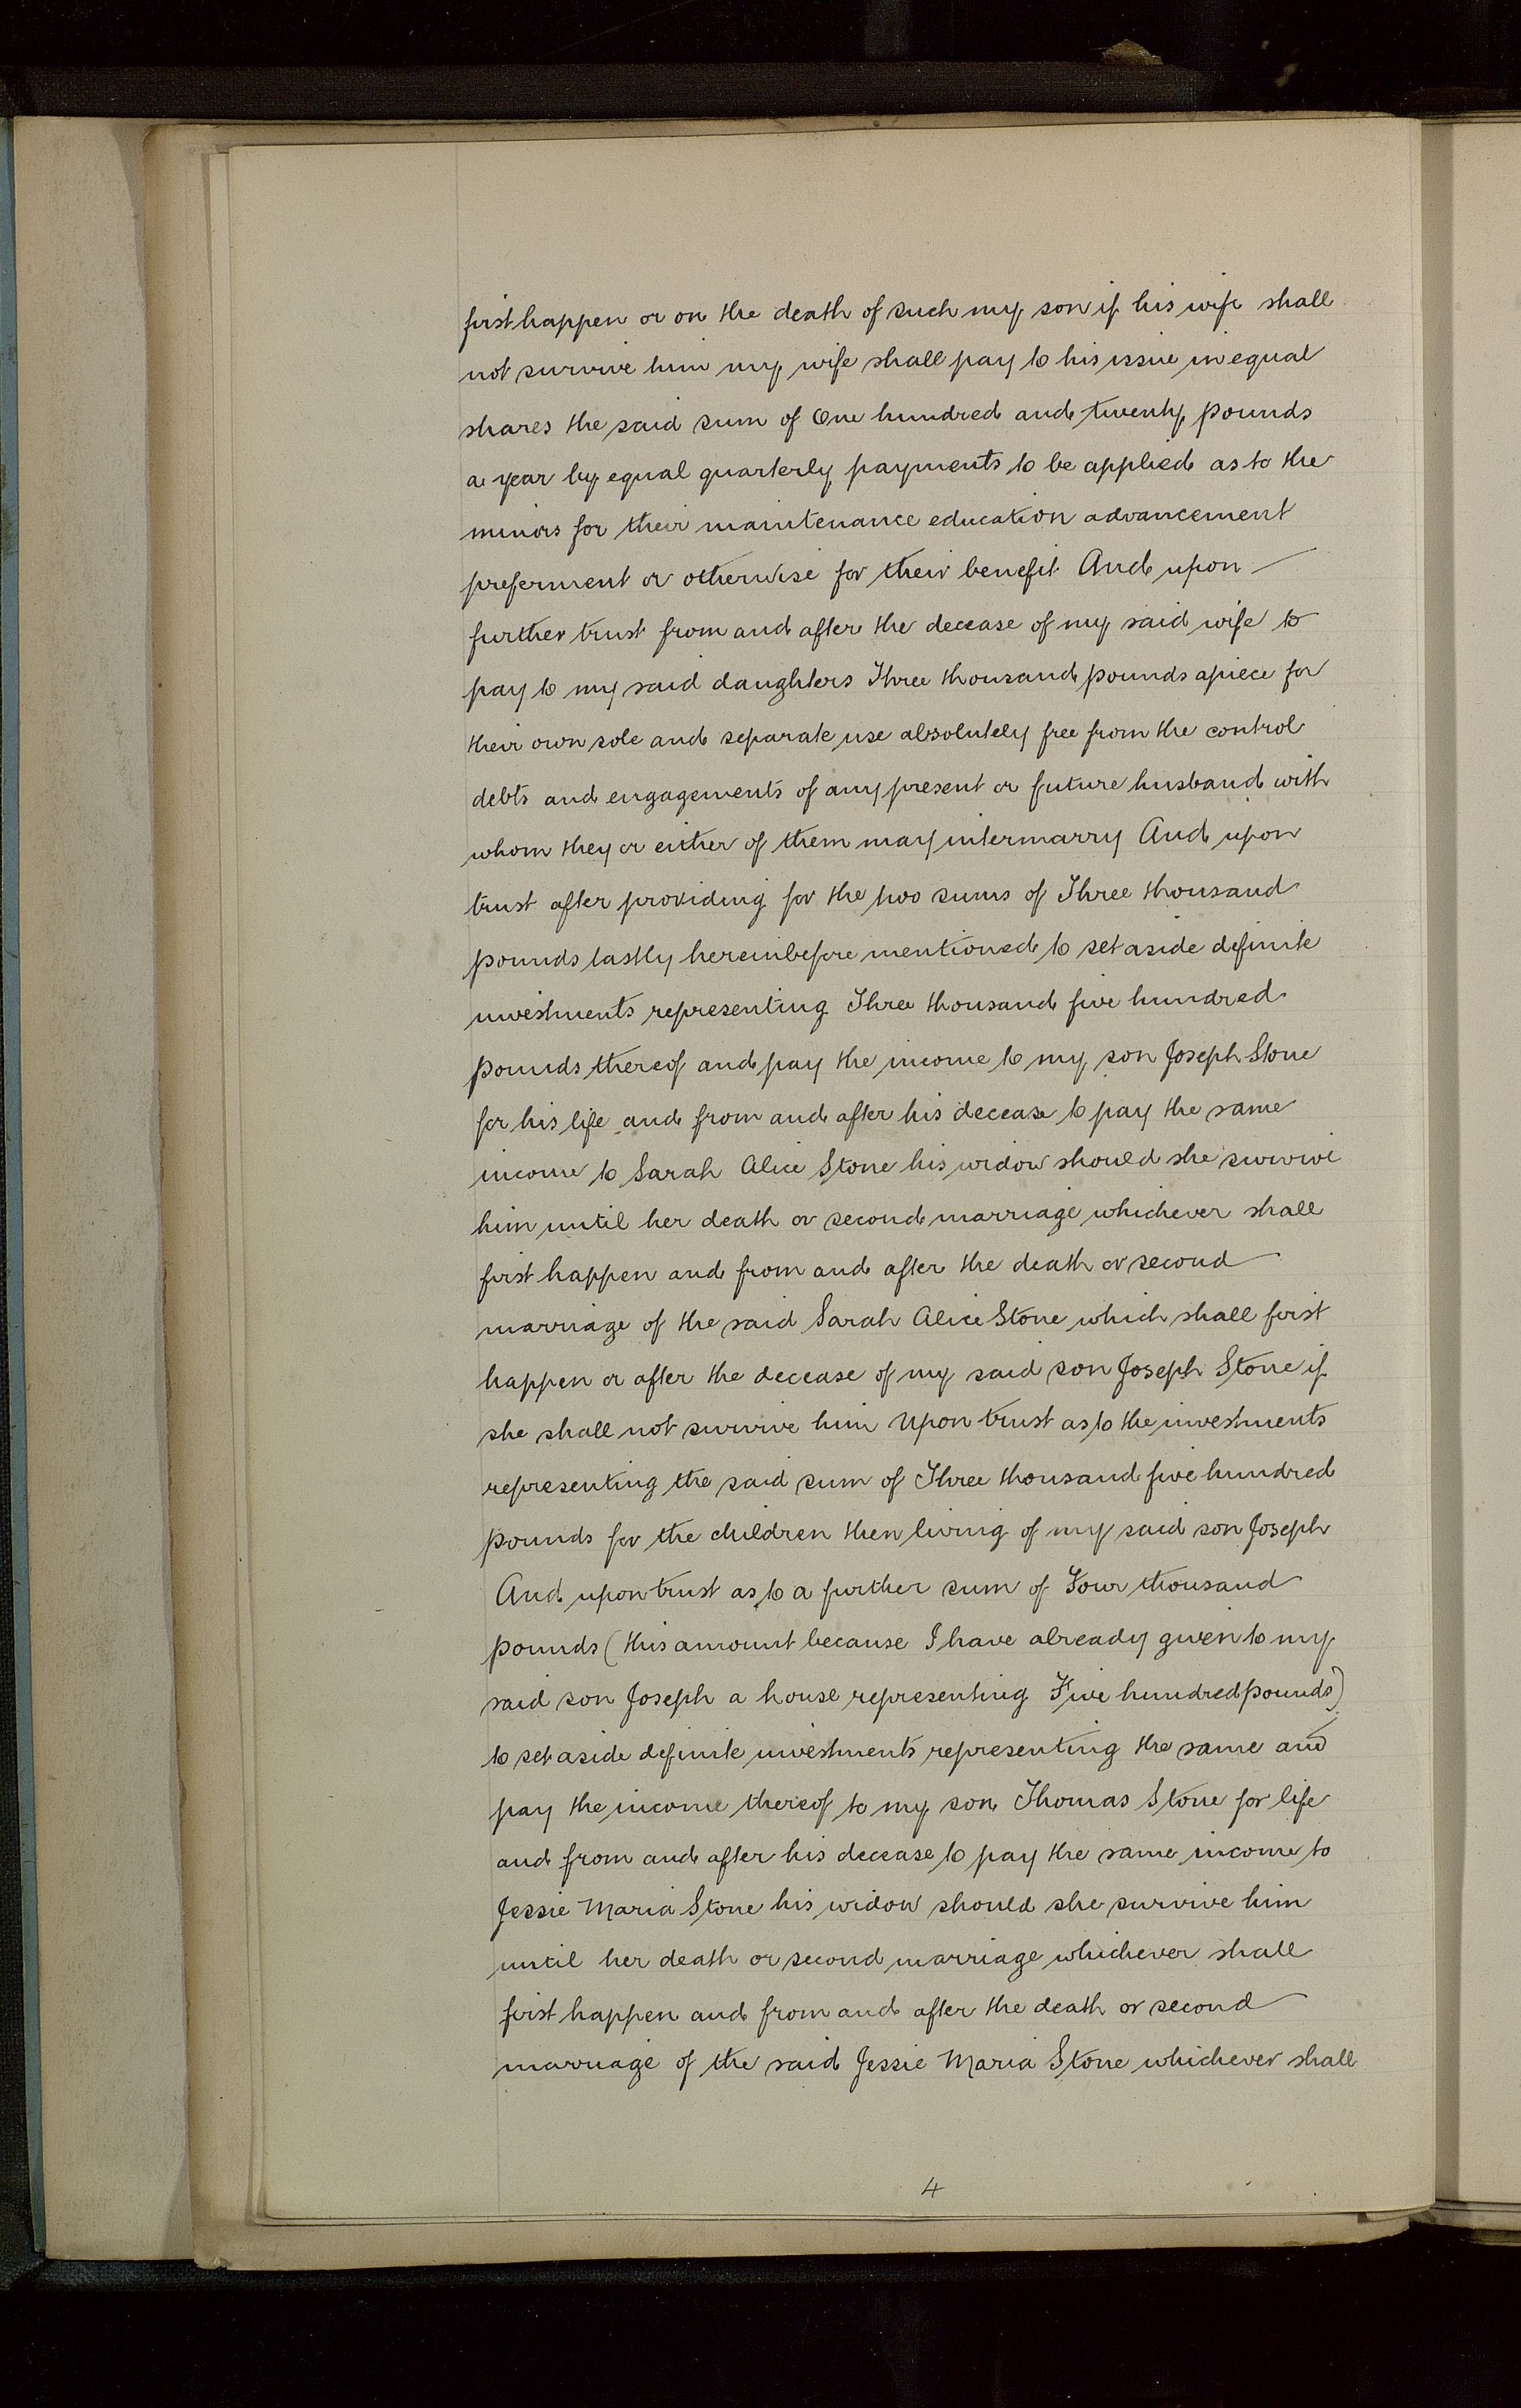 first happen or on the death of such my son if his wife shall
not survive him my wife shall pay to his issue in equal
shares the said sum of One hundred and twenty pounds
a year by equal quarterly payments to be applied as to the
minors for their maintenance education advancement
preferment or otherwise for their benefit And upon
further trust from and after the decease of my said wife to
pay to my said daughters Three thousand pounds apiece for
their own sole and separate use absolutely free from the control
debts and engagements of any present or future husband with
whom they or either of them may intermarry And upon
trust after providing for the two sums of Three thousand
pounds lastly hereinbefore mentioned to set aside definite
investments representing Three thousand five hundred
pounds thereof and pay the income to my son Joseph Stone
for his life and from and after his decease to pay the same
income to Sarah Alice Stone his widow should she survive
him until her death or second marriage whichever shall
first happen and from and after the death or second
marriage of the said Sarah Alice Stone which shall first
happen or after the decease of my said son Joseph Stone if
she shall not survive him Upon trust as to the investments
representing the said sum of Three thousand five hundred
pounds for the children then living of my said son Joseph
And upon trust as to a further sum of Four thousand
pounds (this amount because I have already given to my
said son Joseph a house representing Five hundred pounds)
to set aside definite investments representing the same and
pay the income thereof to my son Thomas Stone for life
and from and after his decease to pay the same income to
Jessie Maria Stone his widow should she survive him
until her death or second marriage whichever shall
first happen and from and after the death or second
marriage of the said Jessie Maria Stone whichever shall
4